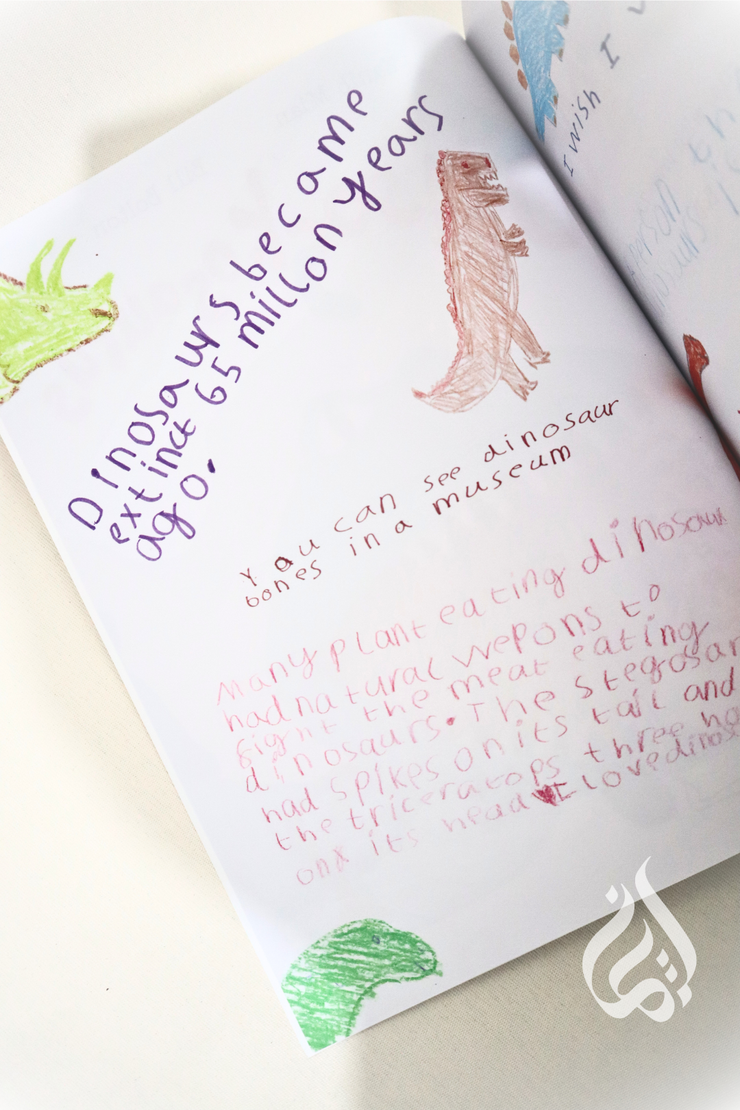 Dinosaurs became
extinct 65 millon years
ago.
You can see dinosaur
bones in a museum
Many plant eating dinosaur
had natural wepons to
fight the meat eating
dinosaurs. The stegosar
had spikes on its tail and
the triceratops three ho
on its head I love dinos
I wish I w
person th
إيمان